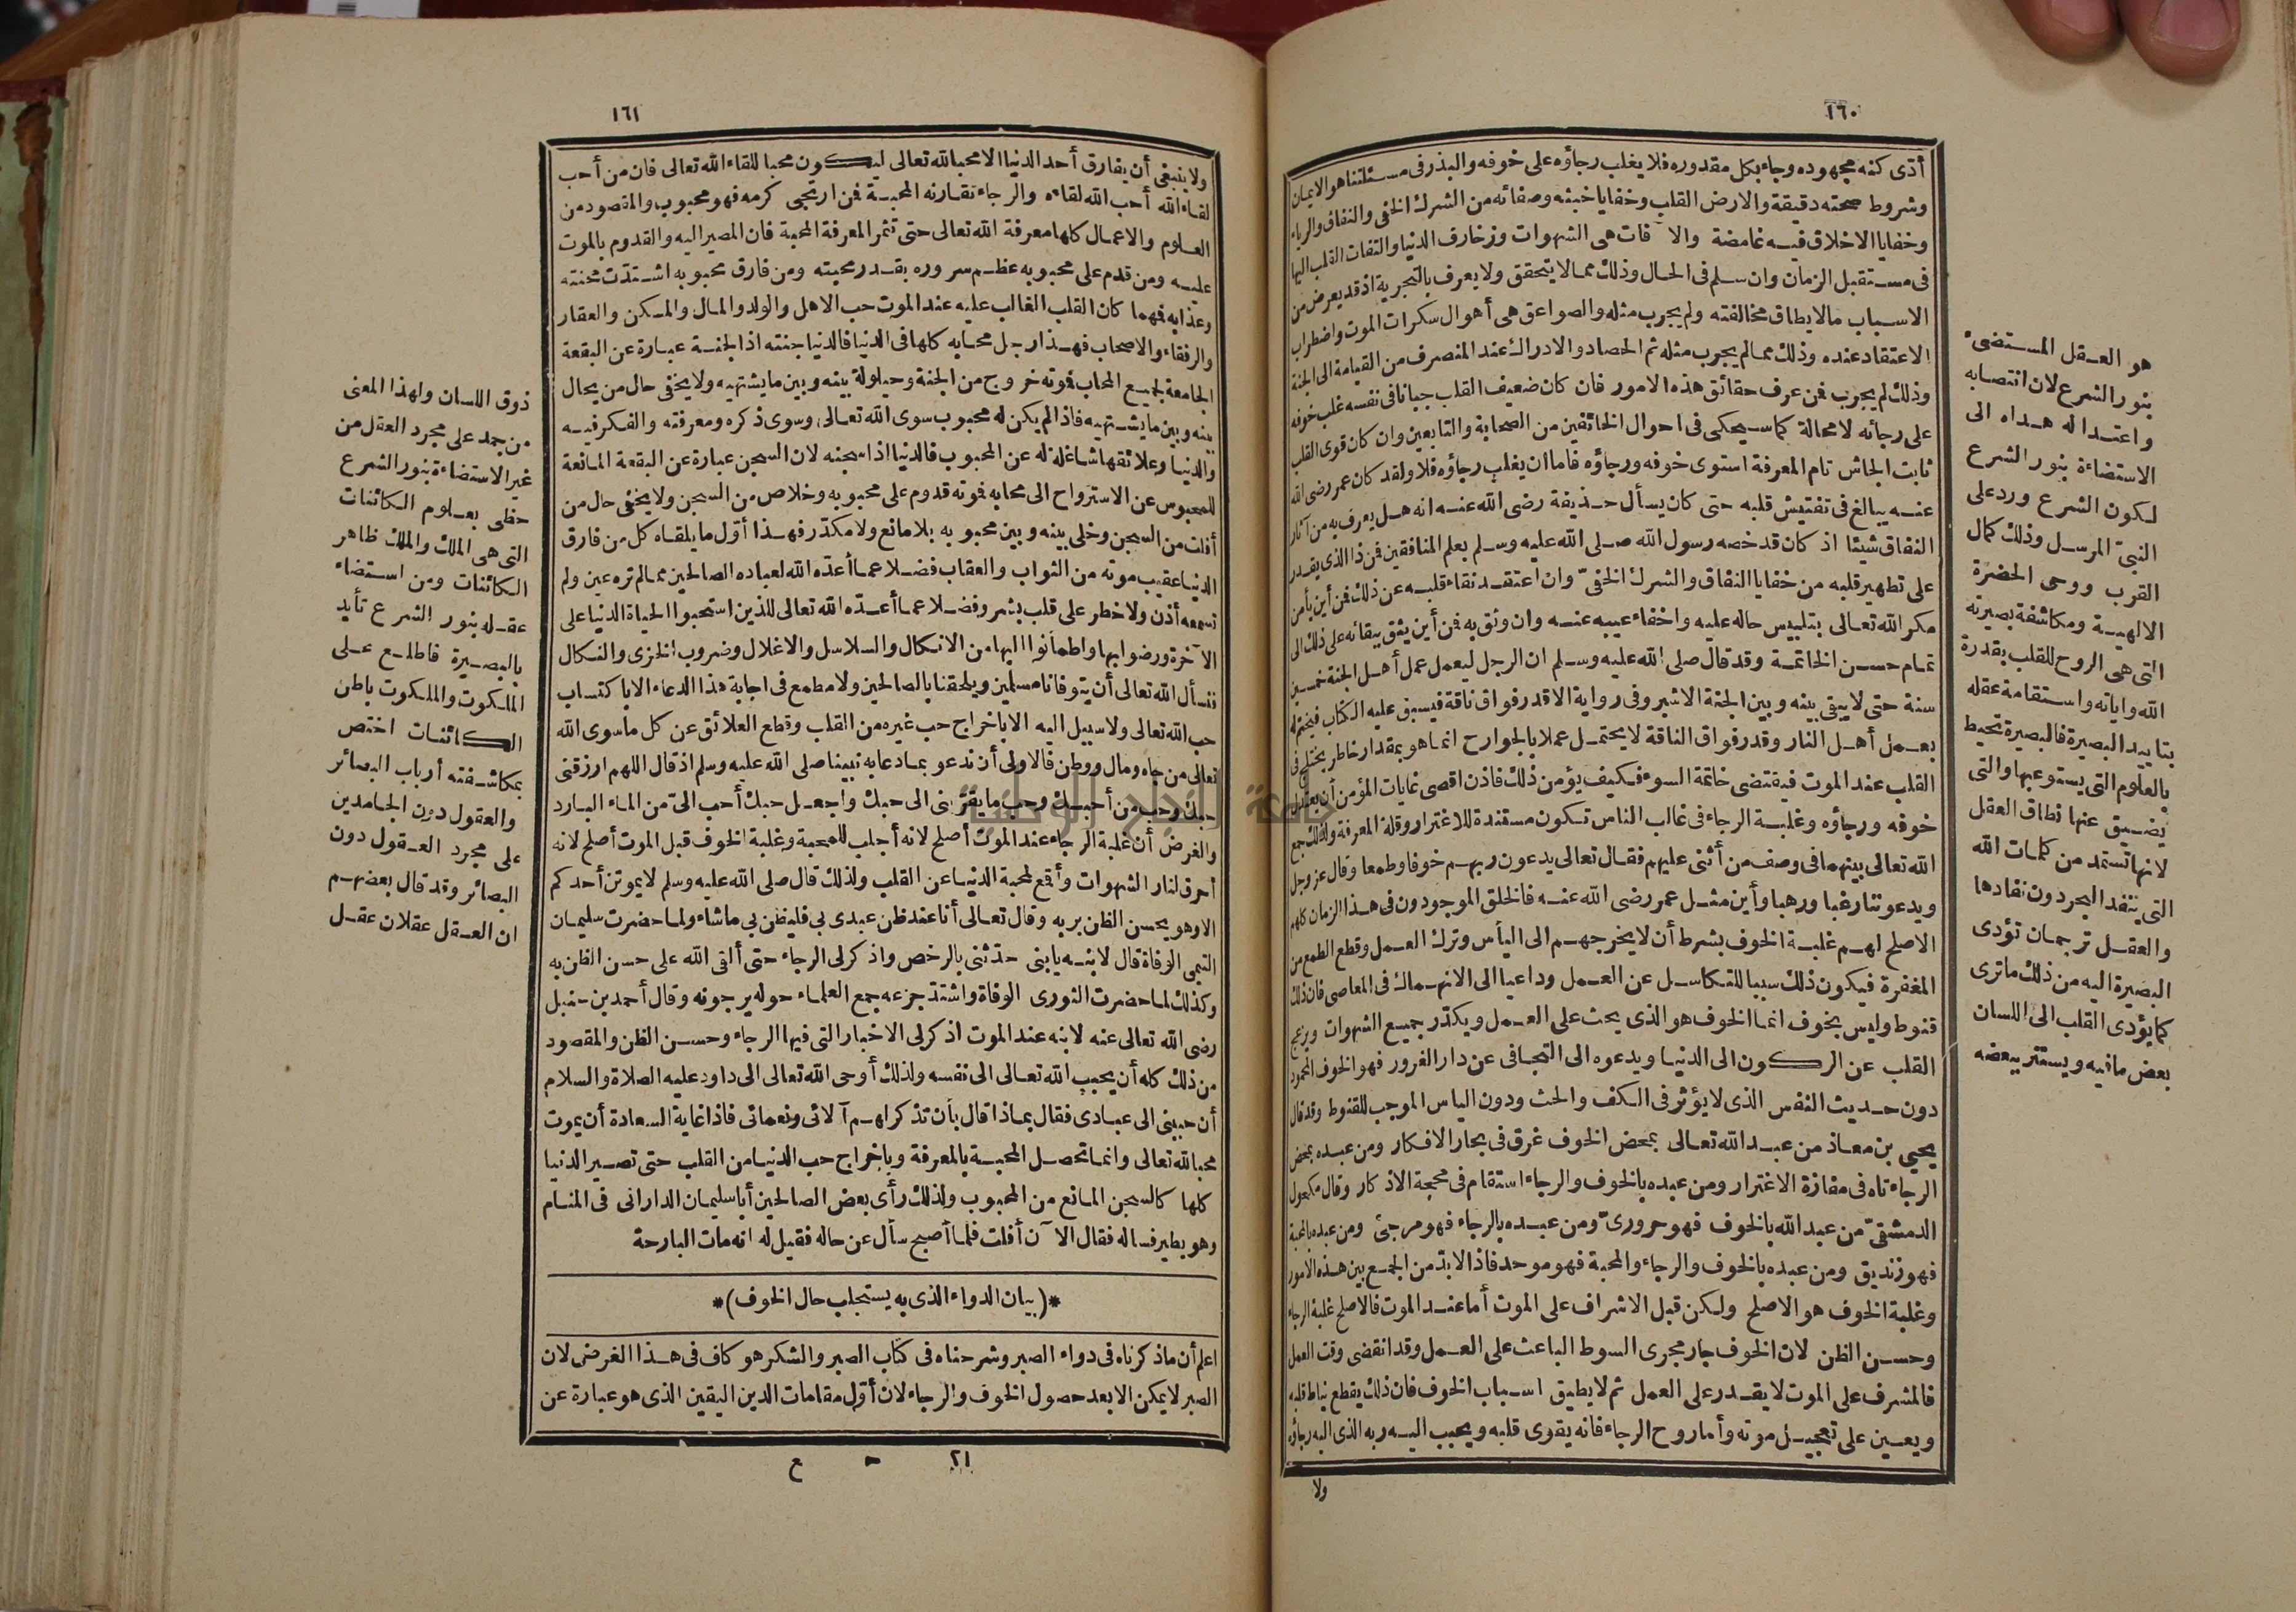 ١٦٠
أدّى كنه مجهوده وجاء بكل مقدوره فلا يغلب رجاؤه على خوفه والبذر فى مسئلتنا هو الايمان
وشروط صحته دقيقة والارض القلب وخفايا خبثه وصفائه من الشرك الخفى والنفاق والرياء
وخفايا الاخلاق فيه غامضة والآفات هى الشهوات وزخارف الدنيا والتفات القلب اليها
فى مستقبل الزمان وان سلم فى الحال وذلك مما لا يتحقق ولا يعرف بالتجربة اذ قد يعرض من
الاسباب مالا يطاق مخالفته ولم يجرب مثله والصواعق هى أهوال سكرات الموت واضطراب
الاعتقاد عنده وذلك مما لم يجرب مثله ثم الحصاد والادراك عند المنصرف من القيامة الى الجنة
وذلك لم يجرب فمن عرف حقائق هذه الامور فان كان ضعيف القلب جبانا فى نفسه غلب خوفه
على رجائه لا محالة كما سيحكى فى احوال الخائفين من الصحابة والتابعين وان كان قوى القلب
ثابت الجاش تام المعرفة استوى خوفه ورجاؤه فاما ان يغلب رجاؤه فلا ولقد كان عمر رضى الله
عنه يبالغ فى تفتيش قلبه حتى كان يسأل حذيفة رضى الله عنه انه هل يعرف به من آثار
النفاق شيئا اذ كان قد خصه رسول الله صلى الله عليه وسلم بعلم المنافقين فمن ذا الذى يقدر
على تطهير قلبه من خفايا النفاق والشرك الخفىّ وان اعتقد نقاء قلبه عن ذلك فمن أين يأمن
مكر الله تعالى بتلبيس حاله عليه واخفاء عيبه عنه وان وثق به فمن أين يثق ببقائه على ذلك الى
تمام حسن الخاتمة وقد قال صلى الله عليه وسلم ان الرجل ليعمل عمل أهل الجنة خمسين
سنة حتى لا يبقى بينه وبين الجنة الا شبر وفى رواية الا قدر فواق ناقة فيسبق عليه الكتاب فيختم له
بعمل أهل النار وقدر فواق الناقة لا يحتمل عملا بالجوارح انما هو بمقدار خاطر يختلج فى
القلب عند الموت فيقتضى خاتمة السوء فكيف يؤمن ذلك فاذن اقصى غايات المؤمن أن يعتدل
خوفه ورجاؤه وغلبة الرجاء فى غالب الناس تكون مستندة للاغترار وقلة المعرفة ولذلك جمع
الله تعالى بينهما فى وصف من أثنى عليهم فقال تعالى يدعون ربهم خوفا وطمعا وقال عز وجل
ويدعوننا رغبا ورهبا وأين مثل عمر رضى الله عنه فالخلق الموجودون فى هذا الزمان كلهم
الاصلح لهم غلبة الخوف بشرط أن لا يخرجهم الى اليأس وترك العمل وقطع الطمع من
المغفرة فيكون ذلك سببا للتكاسل عن العمل وداعيا الى الانهماك فى المعاصى فان ذلك
قنوط وليس بخوف انما الخوف هو الذى يحث على العمل ويكدّر جميع الشهوات ويزعج
القلب عن الركون الى الدنيا ويدعوه الى التجافى عن دار الغرور فهو الخوف المحمود
دون حديث النفس الذى لا يؤثر فى الكف والحث ودون الياس الموجب للقنوط وقد قال
يحيى بن معاذ من عبد الله تعالى بمحض الخوف غرق فى بحار الافكار ومن عبده بمحض
الرجاء تاه فى مفازة الاغترار ومن عبده بالخوف والرجاء استقام فى محجة الاذكار وقال مكحول
الدمشقىّ من عبد الله بالخوف فهو حرورىّ ومن عبده بالرجاء فهو مرجئ ومن عبده بالمحبة
فهو زنديق ومن عبده بالخوف والرجاء والمحبة فهو موحد فاذا لابدّ من الجمع بين هذه الامور
وغلبة الخوف هو الاصلح ولكن قبل الاشراف على الموت أما عند الموت فالاصلح غلبة الرجاء
وحسن الظن لان الخوف جار مجرى السوط الباعث على العمل وقد انقضى وقت العمل
فالمشرف على الموت لا يقدر على العمل ثم لا يطيق اسباب الخوف فان ذلك يقطع نياط قلبه
ويعين على تعجيل موته وأما روح الرجاء فانه يقوى قلبه ويحبب اليه ربه الذى اليه رجاؤه
ولا
هو العقل المستضىء
بنور الشرع لان انتصابه
واعتداله هداه الى
الاستضاءة بنور الشرع
لكون الشرع ورد على
النبىّ المرسل وذلك كمال
القرب ووحى الحضرة
الالهية ومكاشفة بصيرته
التى هى الروح للقلب بقدرة
الله وآياته واستقامة عقله
بتاييد البصيرة فالبصيرة تحيط
بالعلوم التى يستوعبها والتى
يضيق عنها نطاق العقل
لانها تستمد من كلمات الله
التى ينفد البحر دون نفادها
والعقل ترجمان تؤدى
البصيرة اليه من ذلك ما ترى
كما يؤدى القلب الى اللسان
بعض ما فيه ويستتر ببعضه
١٦١
ولا ينبغى أن يفارق أحد الدنيا الا محبا لله تعالى ليكون محبا للقاء الله تعالى فان من أحب
لقاء الله أحب الله لقاءه والرجاء تقارنه المحبة فمن ارتجى كرمه فهو محبوب والمقصود من
العلوم والاعمال كلها معرفة الله تعالى حتى تثمر المعرفة المحبة فان المصير اليه والقدوم بالموت
عليه ومن قدم على محبوبه عظم سروره بقدر محبته ومن فارق محبوبه اشتدّت محنته
وعذابه فهما كان القلب الغالب عليه عند الموت حب الاهل والولد والمال والمسكن والعقار
والرفقاء والاصحاب فهذا رجل محابه كلها فى الدنيا فالدنيا جنته اذ الجنة عبارة عن البقعة
الجامعة لجميع المحاب فموته خروج من الجنة وحيلولة بينه وبين ما يشتهيه ولا يخفى حال من يحال
بينه وبين ما يشتهيه فاذا لم يكن له محبوب سوى الله تعالى وسوى ذكره ومعرفته والفكر فيه
والدنيا وعلائقها شاغلة له عن المحبوب فالدنيا اذا سجنه لان السجن عبارة عن البقعة المانعة
للمحبوس عن الاسترواح الى محابه فموته قدوم على محبوبه وخلاص من السجن ولا يخفى حال من
أفلت من السجن وخلى بينه وبين محبوبه بلا مانع ولا مكدّر فهذا أوّل ما يلقاه كل من فارق
الدنيا عقيب موته من الثواب والعقاب فضلا عما أعدّه الله لعباده الصالحين مما لم تره عين ولم
تسمعه أذن ولا خطر على قلب بشر وفضلا عما أعدّه الله تعالى للذين استحبوا الحياة الدنيا على
الآخرة ورضوا بها واطمأنوا اليها من الانكال والسلاسل والاغلال وضروب الخزى والنكال
فنسأل الله تعالى أن يتوفانا مسلمين ويلحقنا بالصالحين ولا مطمع فى اجابة هذا الدعاء الا باكتساب
حب الله تعالى ولا سبيل اليه الا باخراج حب غيره من القلب وقطع العلائق عن كل ما سوى الله
تعالى من جاه ومال ووطن فالاولى أن ندعو بما دعا به نبينا صلى الله عليه وسلم اذ قال اللهم ارزقنى
حبك وحب من أحبك وحب ما يقرّبنى الى حبك واجعل حبك أحب الىّ من الماء البارد
والغرض أن غلبة الرجاء عند الموت أصلح لانه أجلب للمحبة وغلبة الخوف قبل الموت أصلح لانه
أحرق لنار الشهوات وأقمع لمحبة الدنيا عن القلب ولذلك قال صلى الله عليه وسلم لا يموتن أحدكم
الا وهو يحسن الظن بربه وقال تعالى أنا عند ظن عبدى بى فليظن بى ما شاء ولما حضرت سليمان
التيمى الوفاة قال لابنه يا بنى حدّثنى بالرخص واذكر لى الرجاء حتى ألقى الله على حسن الظن به
وكذلك لما حضرت الثورى الوفاة واشتدّ جزعه جمع العلماء حوله يرجونه وقال أحمد بن حنبل
رضى الله تعالى عنه لابنه عند الموت اذكر لى الاخبار التى فيها الرجاء وحسن الظن والمقصود
من ذلك كله أن يحبب الله تعالى الى نفسه ولذلك أوحى الله تعالى الى داود عليه الصلاة والسلام
أن حببنى الى عبادى فقال بماذا قال بأن تذكر لهم آلائى ونعمائى فاذا غاية السعادة أن يموت
محبا لله تعالى وانما تحصل المحبة بالمعرفة وباخراج حب الدنيا من القلب حتى تصير الدنيا
كلها كالسجن المانع من المحبوب ولذلك رأى بعض الصالحين أبا سليمان الدارانى فى المنام
وهو يطير فساله فقال الآن أفلت فلما أصبح سأل عن حاله فقيل له انه مات البارحة
*(بيان الدواء الذى به يستجلب حال الخوف)*
اعلم أن ما ذكرناه فى دواء الصبر وشرحناه فى كتاب الصبر والشكر هو كاف فى هذا الغرض لان
الصبر لا يمكن الا بعد حصول الخوف والرجاء لان أوّل مقامات الدين اليقين الذى هو عبارة عن
٢١ ح ع
ذوق اللسان ولهذا المعنى
من جمد على مجرد العقل من
غير الاستضاءة بنور الشرع
حظى بعلوم الكائنات
التى هى الملك والملك ظاهر
الكائنات ومن استضاء
عقله بنور الشرع تأيد
بالبصيرة فاطلع على
الملكوت والملكوت باطن
الكائنات اختص
بمكاشفته أرباب البصائر
والعقول دون الجامدين
على مجرد العقول دون
البصائر وقد قال بعضهم
ان العقل عقلان عقل
جامعة النجاح الوطنية